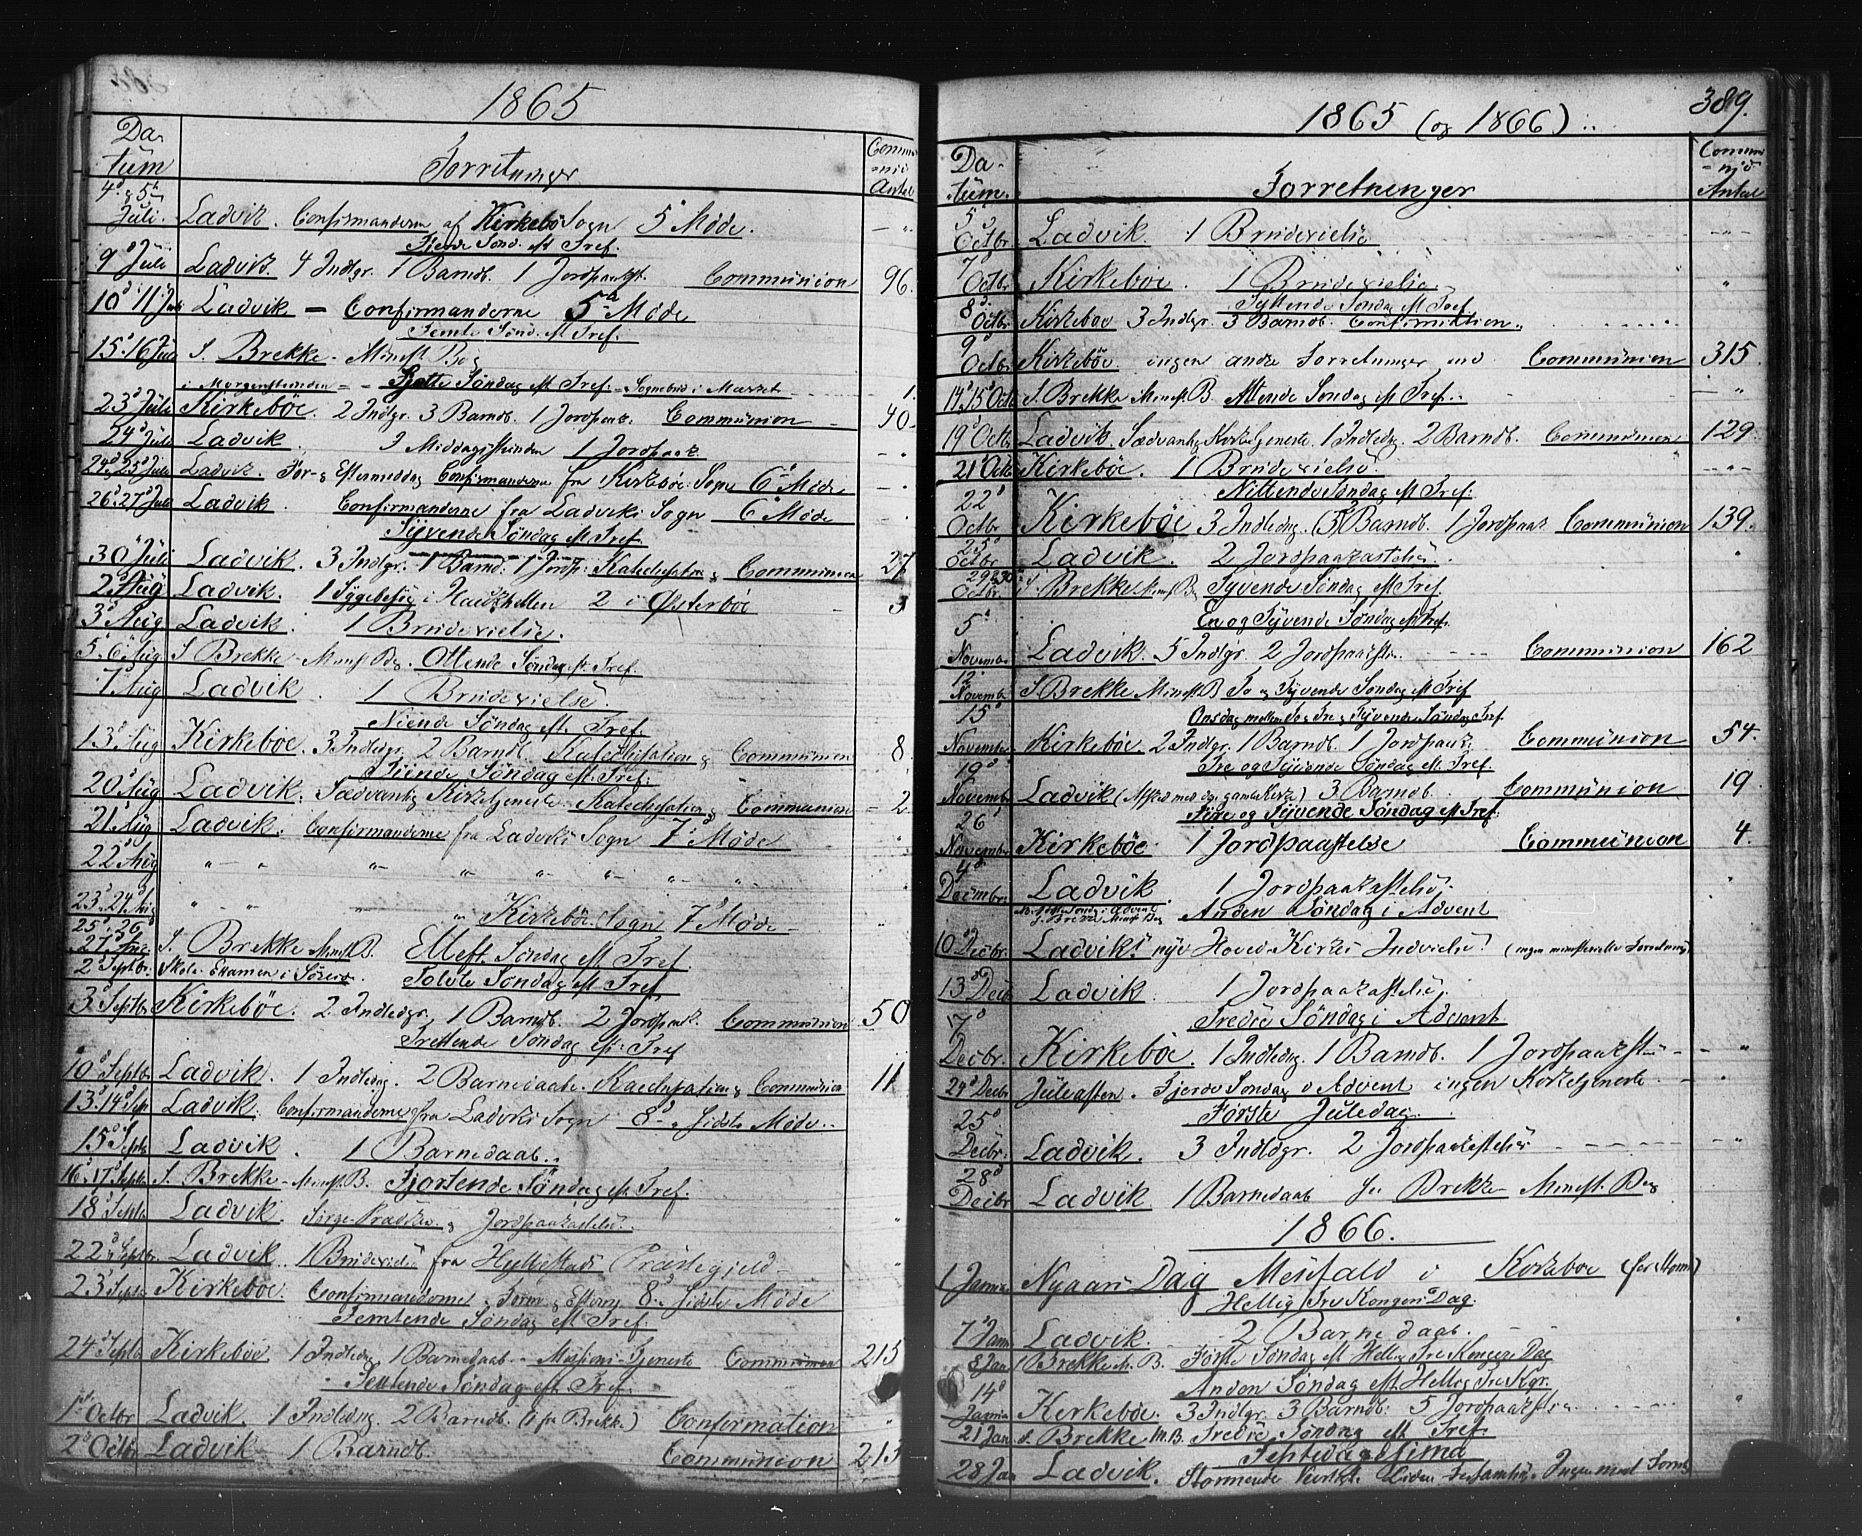 1865
Da-
tum
Forretninger
Commu
nio
Antal
4d & 5d
Juli. Ladvik. Confirmanderne af Kirkebö Sogn 5d Möde.
Fjerde Sönd. eft Tref.
9d Juli Ladvik. 4 Indlgr. 1 Barndb. 1 Jordpaakst. Communion 96.
10d 11d Juli Ladvik - Confirmanderne 5d Möde
Femte Sönd. eft Tref.
15d 16 Juli S. Brekke - Minist Bog
i Morgenstunden - Sjette Söndag eft Tref. - Sognebud i 1.
23d Juli Kirkeböe. 2 Indlgr. 3 Barndb. 1 Jordpaak. Communion - 40.
24d Juli Ladvik. Middagsstunden 1 Jordpaak
24d, 25d Juli Ladvik. For- & Eftermiddag Confirmanderne fra Kirkeböe Sogn 6d Möde
26d 27d Juli Ladvik. Confirmanderne fra Ladviks Sogn 6d Möde
Syvende Söndag eft Tref
30d Juli Ladvik. 3 Indlgr. 1 Barnd: 1 Jordp: Katechisation & Communion 27
2d Aug Ladvik. 1 Sygebesög i 2 i Österböe - 3
3d Aug Ladvik. 1 Brudevielse.
5. 6d Aug S. Brekke - Minist Bog. Ottende Söndag eft Tref.
7d Aug Ladvik. 1 Brudevielse.
Niende Söndag eft Tref.
13d Aug Kirkeböe. 3 Indledgr. 2 Barndb. Katechisation & Communion 8.
Tiende Söndag eft. Tref.
20d Aug Ladvik. Sædvanlig Kirketjeneste. Katechisation & Communion - 2
21d Aug Ladvik. Confirmanderne fra Ladviks Sogn 7d Möde
22d Aug " " " " " " "
23d 24d Aug " " " " Kirkeböe Sogn 7d Möde -
25d, 26d
27d Aug S. Brekke Minist B. Ellefte Söndag eft Tref.
2d Septbr. Skole Examen i Tolvte Söndag eft Tref
3d Septbr Kirkeböe. 2 Indledgr, 1 Barndb. 2 Jordpaak. Communion 50
Trettende Söndag eft: Tref
10d Septbr Ladvik. 1 Indledg. 2 Barnedaabe. Katechisation & Communion 11
13d 14d Sept Ladvik. Confirmanderne fra Ladviks Sogn 8d & Sidste Möde..
15d Septb Ladvik. 1 Barnedaab..
16d, 17d Septbr S. Brekke - Minist B. Fjortende Söndag eft Tref.
18d Septb Ladvik. Sörge Prædiken & Jordpaakastelse.
22d Septbr. Ladvik. 1 Brudevielse fra Hyllestads Præstegjeld -
23d Septb Kirkeböe. Confirmanderne. Form & Efterm 8d & Sidste Möde
Femtende Söndag eft Tref.
24d Septb Kirkeböe 1 Indledg. 1 Barnedaab - Missions-Tjeneste Communion 213
Sextende Söndag eft Tref.
1d Octbr Ladvik. 1 Indledng. 2 Barndb. (1 fra Brekke) Confirmation
2d Octbr Ladvik 1 Barndb. Communion 213
389.
1865 (og 1866)..
Da-
tum.
Forretninger
Commu
nio
Antal
5d
Octbr Ladvik 1 Brudevielse
7d
Octbr Kirkeböe. 1 Brudevielse
8d Syttende Söndag eft Tref
Octbr Kirkeböe 3 Indlgr. 3 Barndb. Confirmation.
9d
Octbr Kirkeböe ingen andre Forretninger end Communion 315
14d 15d Octb S. Brekke Minist B. Attende Söndag eft Tref..
19d Octbr Ladvik. Sædvanlig Kirketjeneste. 1 Indledg. 2 Barndb. Communion 129
21d Octb Kirkeböe. 1 Brudevielse.
22d Nittende Söndag eft Tref:
Octbr Kirkeböe 3 Indledng. 3 Barndb. 1 Jordpaak Communion 139.
25d
Octbr Ladvik. 2 Jordpaakastelse.
29d & 30d
Octbr. S. Brekke Minist B. Tyvende Söndag eft Tref.
En og Tyvende Söndag eft Tref.
5d
Novembr Ladvik. 5 Indlgr. 2 Jordpaakstn. Communion 162
12d
Novembr S. Brekke Minist B To og Tyvende Söndag eft Tref
15d Onsdag mellem To & Tre & Tyvende Söndag Tref.
Novembr Kirkeböe. 2 Indlgr. 1 Barndb. 1 Jordpaak. Communion 54.
19d Tre og Tyvende Söndag eft Tref.
Novembr Ladvik (Afsked med den gamle Kirke) 3 Barndb. Communion 19
26d Fire og Tyvende Söndag eft Tref:
Novembr Kirkeböe 1 Jordpaastelse Communion 4.
4d
Decembr. Ladvik. 1 Jordpaakastelse.
Anden Söndag i Advent
10d Decbr. Ladviks nye Hoved-Kirkes Indvielse. (ingen ministerielle Forretning)
13d Decb Ladvik. 1 Jordpaakastelse.
17d Tredie Söndag i Advent
Decbr. Kirkeböe. 1 Indledg. 1 Barndb. 1 Jordpaakstn - -
24d Decbr Juleaften. Fjerde Söndag i Advent ingen Kirketjeneste -
25d Förste Juledag.
Decbr. Ladvik. 3 Indlgr. 2 Jordpaakastelse -
28d
Decbr Ladvik 1 Barnedaab S. Brekke Minist. Bog
1866.
1 Januar Nyaars Dag Mesfald i Kirkeböe (for Storm)
Hellig Tre Konger Dag.
7d Janu Ladvik. 2 Barnedaab.
8 Jan S Brekke M. B. Förste Söndag eft Hellig Tre Konger Dag
14d Anden Söndag eft Hellig Tre Kgr.
Januar Kirkeböe. 3 Indlgr. 3 Barndb. 5 Jordpaakstn
21 Jan. S. Brekke M. B. Tredie Söndag eft Tref
Septuagesima
28 Jan Ladvik. Stormende Veirligt. Liden Forsamling. Ingen minist Forret